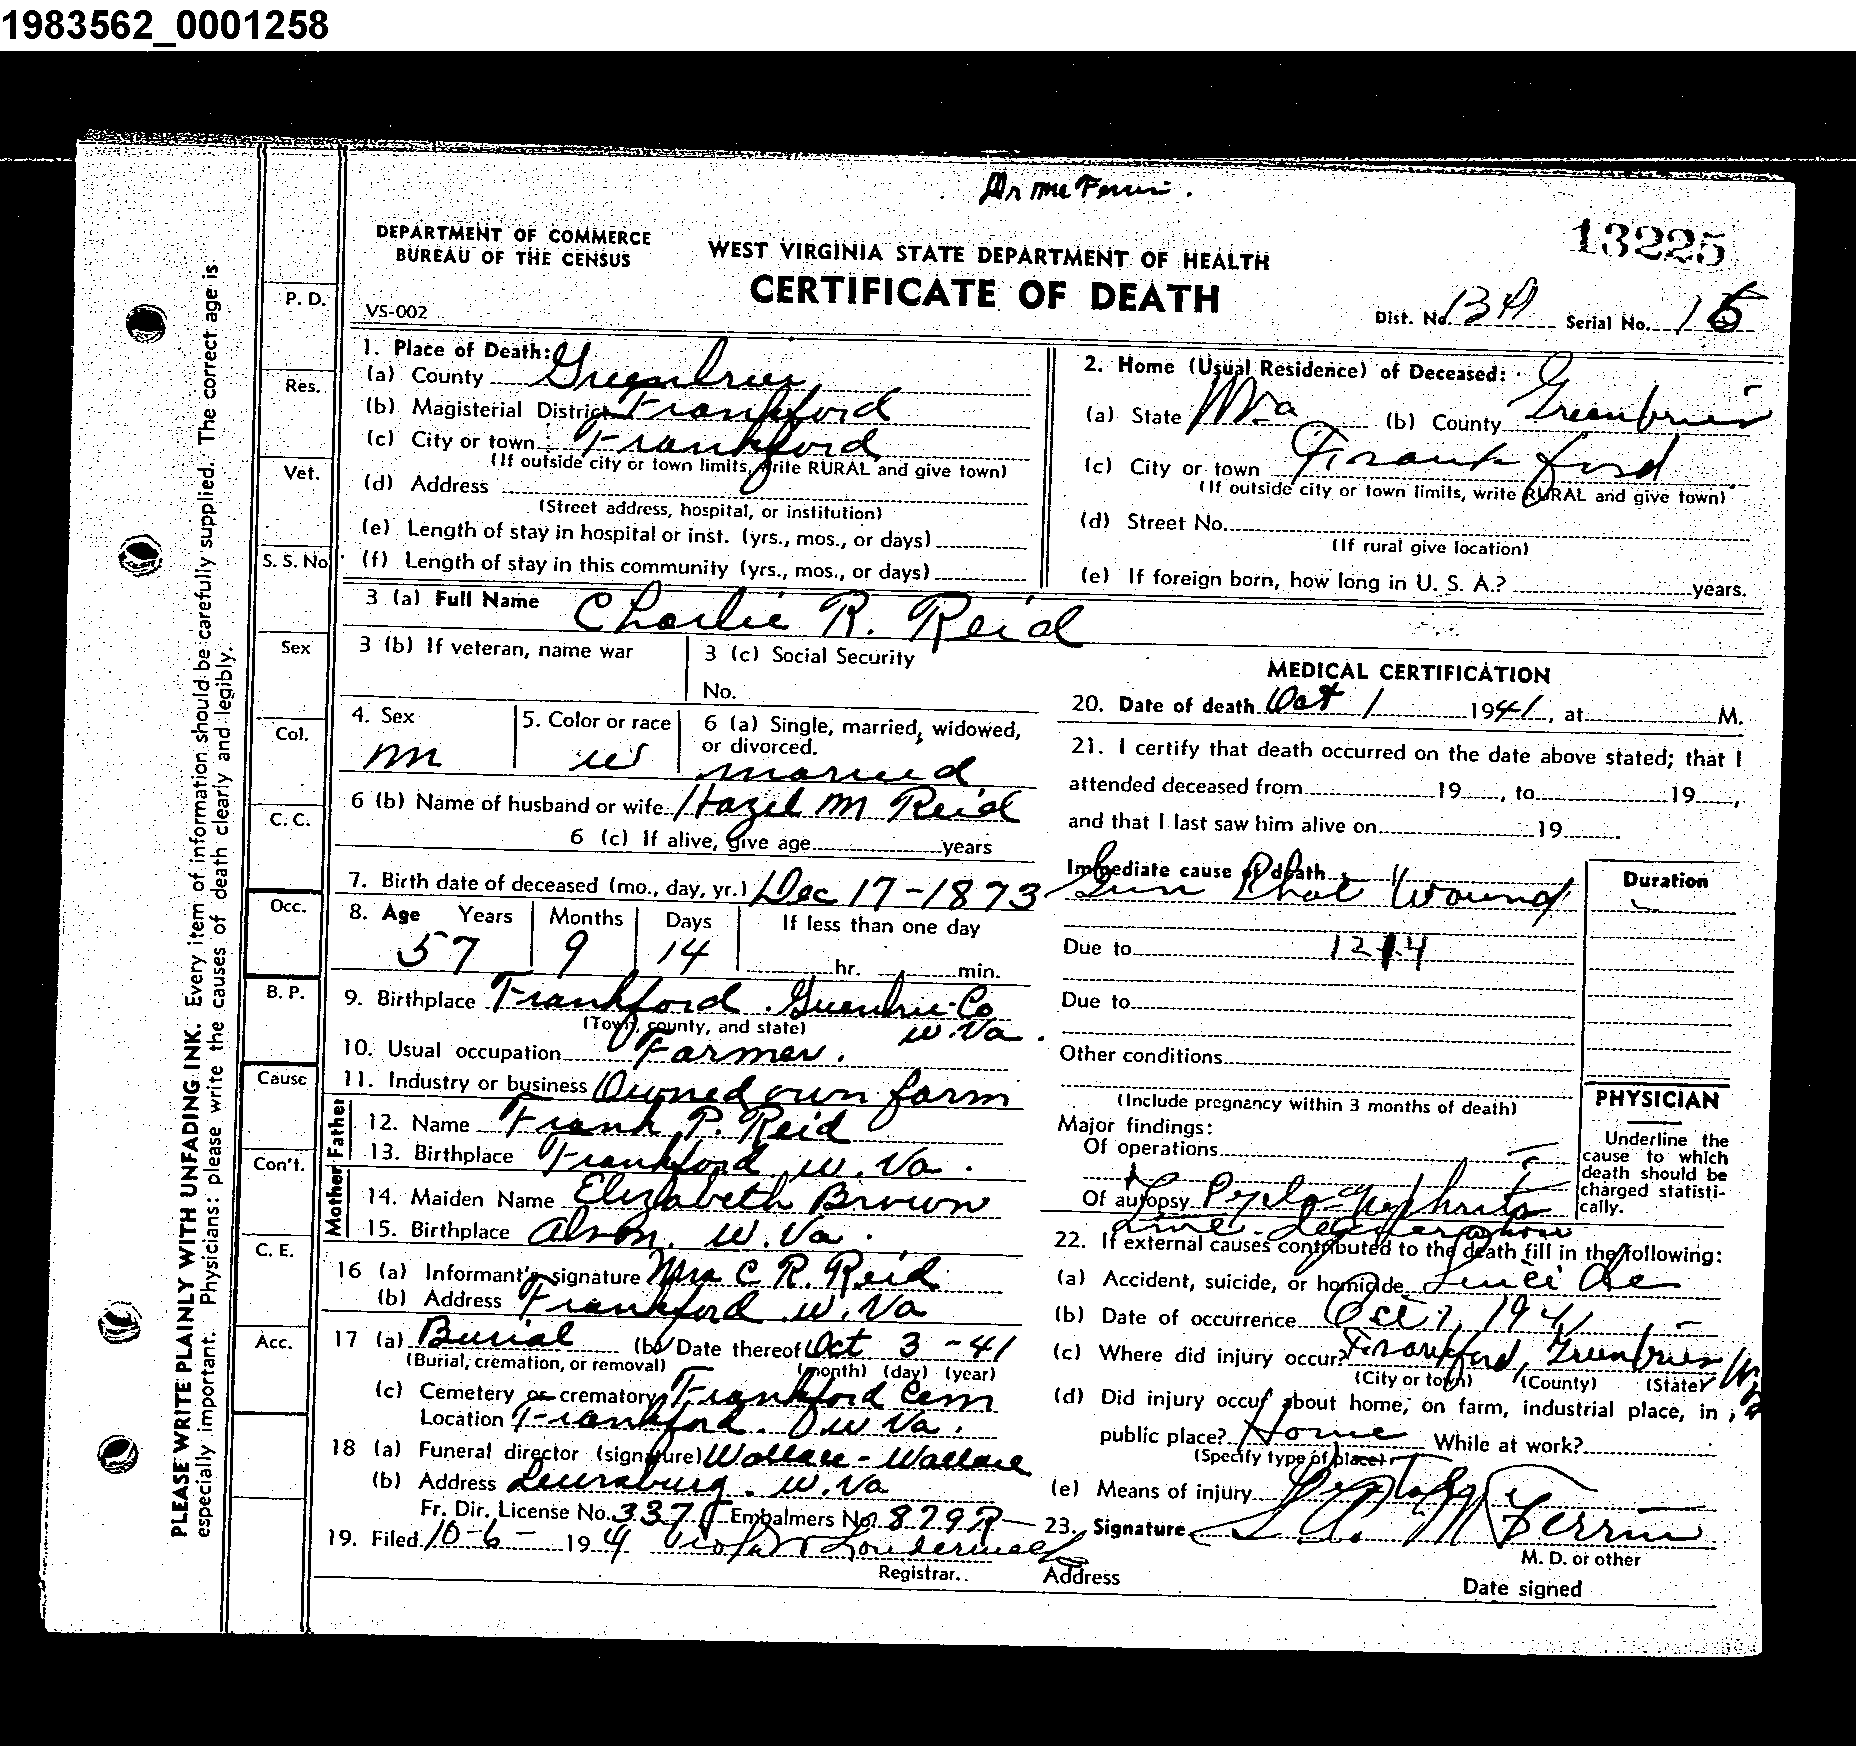 1983562_0001258
Dr McFerrin.
13225
DEPARTMENT OF COMMERCE
BUREAU OF THE CENSUS
WEST VIRGINIA STATE DEPARTMENT OF HEALTH
CERTIFICATE OF DEATH
VS-002
Dist. No. Serial No. 15
PLEASE WRITE PLAINLY WITH UNFADING INK. Every item of information should be carefully supplied. The correct age is
especially important. Physicians: please write the causes of death clearly and legibly.
P. D.
Res.
Vet.
S. S. No.
Sex
Col.
C. C.
Occ.
B. P.
Cause
Con't.
C. E.
Acc.
1. Place of Death:
(a) County Greenbrier
(b) Magisterial District Frankford
(c) City or town Frankford
(If outside city or town limits, write RURAL and give town)
(d) Address
(Street address, hospital, or institution)
(e) Length of stay in hospital or inst. (yrs., mos., or days)
(f) Length of stay in this community (yrs., mos., or days)
2. Home (Usual Residence) of Deceased:
(a) State W.Va (b) County Greenbrier
(c) City or town Frankford
(If outside city or town limits, write RURAL and give town)
(d) Street No.
(If rural give location)
(e) If foreign born, how long in U. S. A.? years.
3 (a) Full Name Charlie R. Reid
3 (b) If veteran, name war
3 (c) Social Security
No.
4. Sex
m
5. Color or race
w
6 (a) Single, married, widowed,
or divorced.
married
6 (b) Name of husband or wife Hazel M Reid
6 (c) If alive, give age years
7. Birth date of deceased (mo., day, yr.) Dec 17-1873
8. Age Years Months Days If less than one day
57 9 14 hr. min.
9. Birthplace Frankford. Greenbrier Co
(Town, county, and state) W.Va.
10. Usual occupation Farmer.
11. Industry or business Owned own farm
Father
12. Name Frank P. Reid
13. Birthplace Frankford W. Va.
Mother
14. Maiden Name Elizabeth Brown
15. Birthplace W. Va.
16 (a) Informant's signature Mrs C R. Reid
(b) Address Frankford W. Va
17 (a) Burial (b) Date thereof Oct 3-41
(Burial, cremation, or removal) (month) (day) (year)
(c) Cemetery or crematory Frankford Cem
Location Frankford. W Va.
18 (a) Funeral director (signature) Wallace - Wallace
(b) Address Lewisburg. W. Va
Fr. Dir. License No. 337 Embalmers No. 879R
19. Filed 10-6- 194
Registrar..
MEDICAL CERTIFICATION
20. Date of death Oct 1 1941, at M.
21. I certify that death occurred on the date above stated; that I
attended deceased from 19 , to 19 ,
and that I last saw him alive on 19 .
Immediate cause of death Duration
Gun Shot Wound
Due to
Due to
Other conditions
(Include pregnancy within 3 months of death)
Major findings:
Of operations
Of autopsy Pyelo-Nephritis
Degeneration
PHYSICIAN
Underline the
cause to which
death should be
charged statisti-
cally.
22. If external causes contributed to the death fill in the following:
(a) Accident, suicide, or homicide Suicide
(b) Date of occurrence Oct 1, 1941
(c) Where did injury occur? Frankford, Greenbrier
(City or town) (County) (State)
(d) Did injury occur about home, on farm, industrial place, in
public place? Home While at work?
(Specify type of place)
(e) Means of injury
23. Signature McFerrin
M. D. or other
Address
Date signed